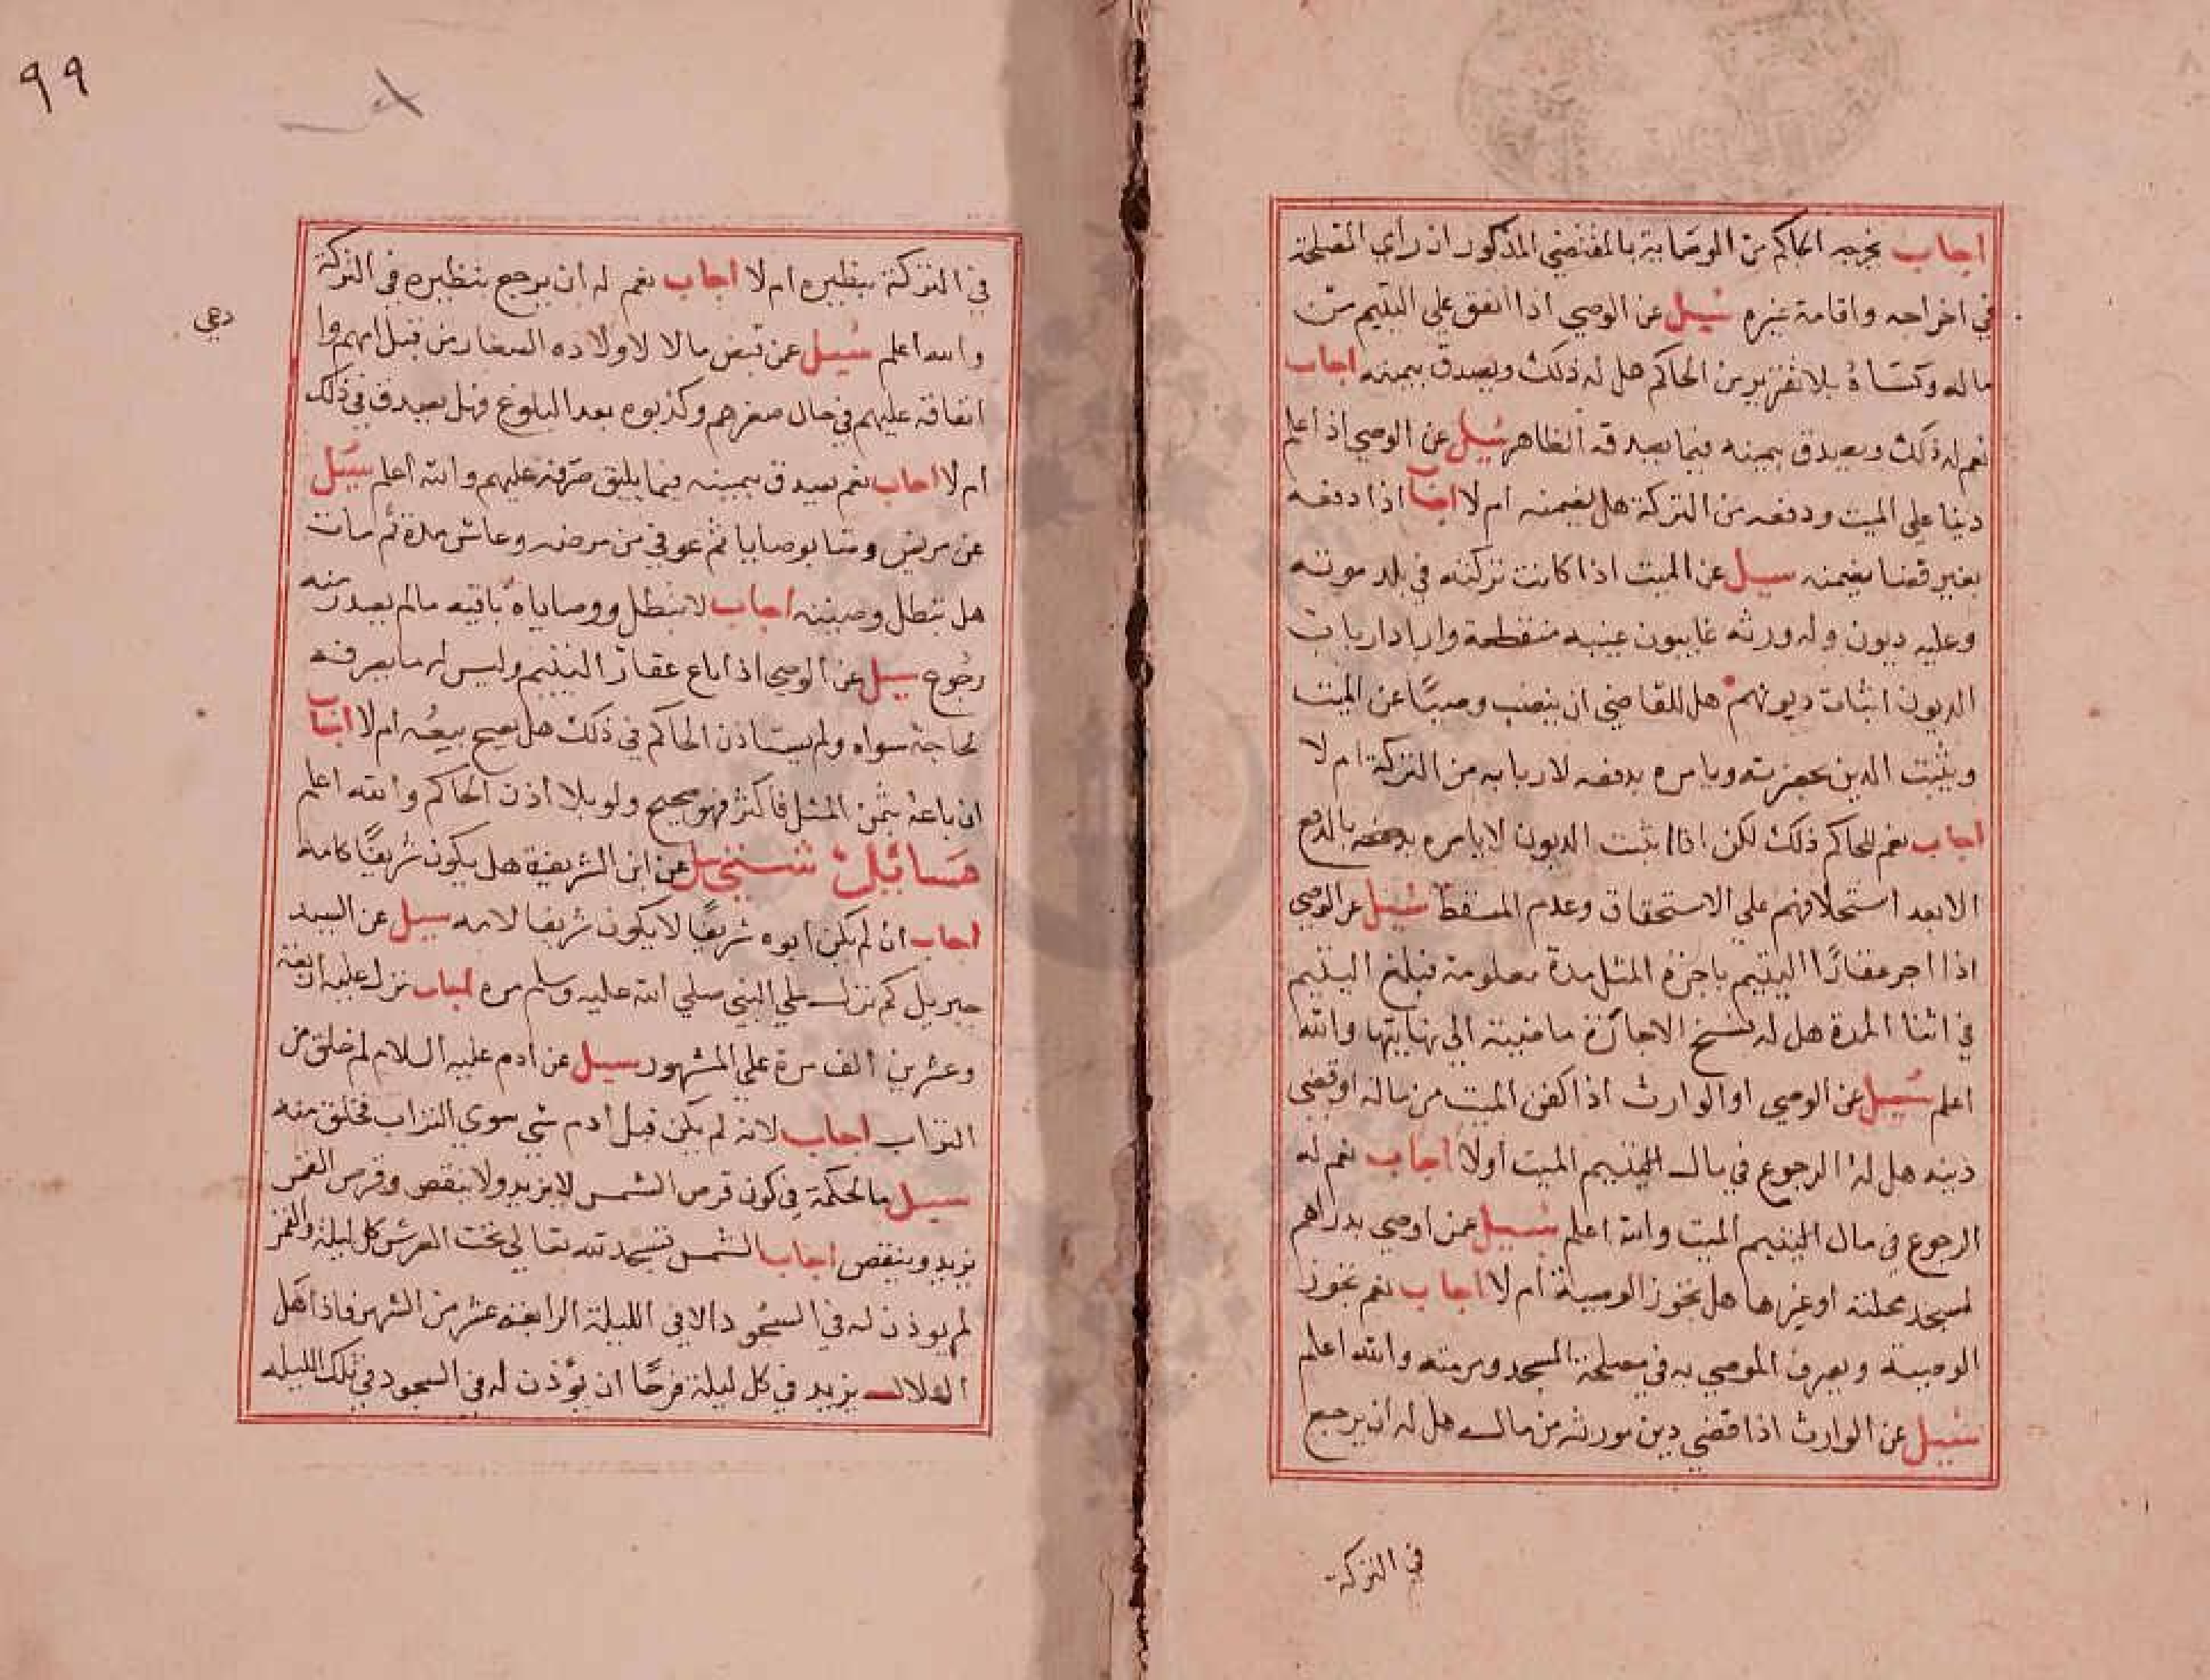 اجاب يخرجه الحاكم من الوصاية بالمقتضي المذكور ان راي المصلحة
في اخراجه واقامة غيره سيل عن الوصي اذا انفق علي اليتيم من
ماله وكساة بلا تقرير من الحاكم هل له ذلك ويصدق بيمينه اجاب
نعم له ذلك ويصدق بيمينه فيما يصدقه الظاهر سيل عن الوصي اذا علم
دينا علي الميت ودفعه من التركة هل يضمنه ام لا اجاب اذا دفعه
بغير قضا يضمنه سيل عن الميت اذا كانت تركته في بلد موته
وعليه ديون وله ورثه غايبون غيبه منقطعة واراد ارباب
الديون اثبات ديونهم هل للقاضي ان ينصب وصيًا عن الميت
ويثبت الدين بحضرته ويامره بدفعه لاربابه من التركة ام لا
اجاب نعم للحاكم ذلك لكن اذا اثبت الديون لا يامره بالدفع
الا بعد استحلافهم علي الاستحقاق وعدم المسقط سيل عن الوصي
اذا اجر عقارًا لليتيم باجرة المثل مدة معلومة فبلغ اليتيم
في اثنا المدة هل له فسخ الاجارة ماضية الي نهايتها والله
اعلم سيل عن الوصي او الوارث اذا كفن الميت من ماله او قضي
دينه هل له الرجوع في مال اليتيم الميت اولا اجاب نعم له
الرجوع في مال اليتيم الميت والله اعلم سيل عمن اوصي بدراهم
لمسجد محلته او غيرها هل تجوز الوصية ام لا اجاب نعم تجوز
الوصية ويصرف الموصي به في مصلحة المسجد ومرمته والله اعلم
سيل عن الوارث اذا قضي دين مورثه من ماله هل له ان يرجع
في التركة
٩٩
في التركة بنظيره ام لا اجاب نعم له ان يرجع بنظيره في التركة
والله اعلم سيل عمن قبض مالا لاولاده الصغار من قبل امهم وا
دعي
انفاقه عليهم في حال صغرهم وكذبوه بعد البلوغ فهل يصدق في ذلك
ام لا اجاب نعم يصدق بيمينه فيما يليق صرفه عليهم والله اعلم سيل
عن مريض وصا بوصايا ثم عوفي من مرضه وعاش مدة ثم مات
هل تبطل وصيته اجاب لا تبطل ووصاياه باقيه مالم يصدر منه
رجوع سيل عن الوصي اذا باع عقار اليتيم وليس له ما يصرفه
لحاجة سواه ولم يستاذن الحاكم في ذلك هل يصح بيعه ام لا اجاب
ان باعه بثمن المثل فاكثر فهو صحيح ولو بلا اذن الحاكم والله اعلم
مسائل شتي سيل عن ابن الشريفة هل يكون شريفًا كامه
اجاب ان لم يكن ابوه شريفًا لا يكون شريفا لامه سيل عن السيد
جبريل كم نزل علي النبي صلي الله عليه وسلم مره اجاب نزل عليه اربعة
وعشرين الف مرة علي المشهور سيل عن ادم عليه السلام لم خلق من
التراب اجاب لانه لم يكن قبل ادم شي سوي التراب فخلق منه
سيل ما الحكمة في كون قرص الشمس لا يزيد ولا ينقص وقرص القمر
يزيد وينقص اجاب الشمس تسجد لله تعالي تحت العرش كل ليلة والقمر
لم يوذن له في السجود الا في الليلة الرابعة عشر من الشهر فاذا هل
الهلال يزيد في كل ليلة فرحًا ان يؤذن له في السجود في تلك الليله